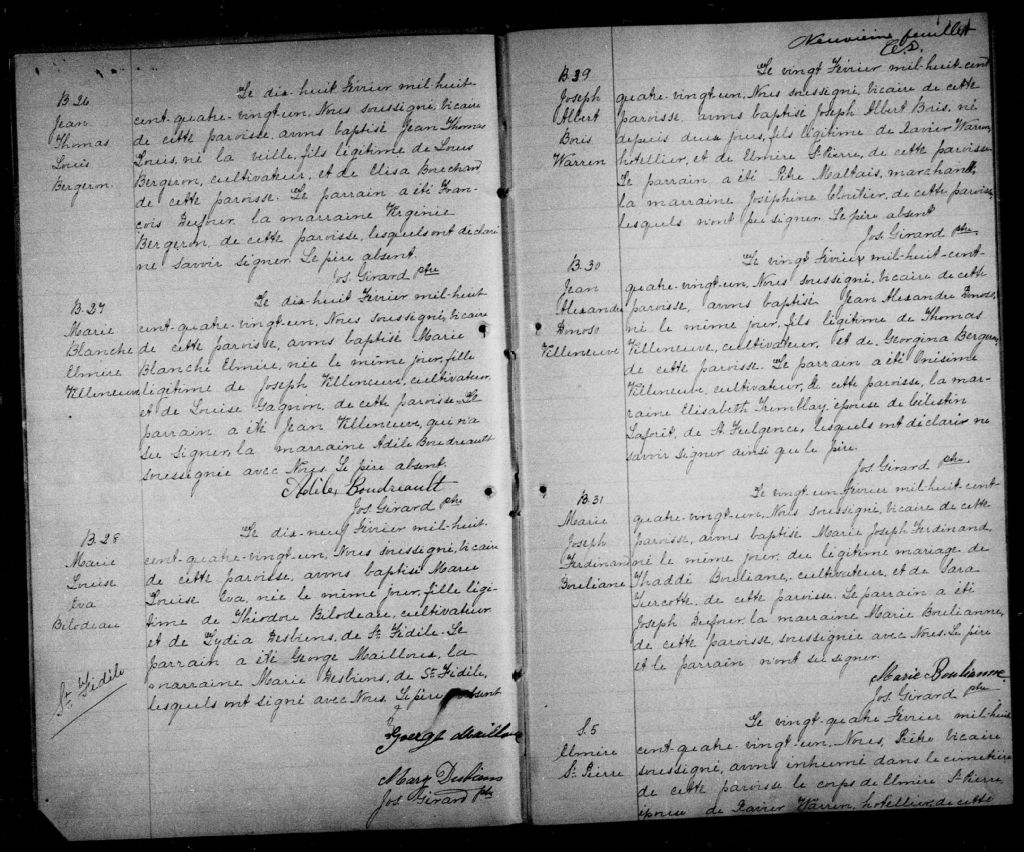 B.26
Jean
Thomas
Louis
Bergeron
Le dix-huit Février mil-huit-
cent-quatre-vingt-un, Nous soussigné, vicaire
de cette paroisse, avons baptisé Jean Thomas
Louis, né la veille, fils légitime de Louis
Bergeron, cultivateur, et de Elisa Bouchard
de cette paroisse. Le parrain a été Fran-
cois Dufour, la marraine Virginie
Bergeron, de cette paroisse, lesquels ont déclaré
ne savoir signer. Le père absent.
Jos. Girard ptre
B.27
Marie
Blanche
Elmire
Villeneuve
Le dix-huit Février mil-huit
cent-quatre-vingt-un, Nous soussigné, vicaire
de cette paroisse, avons baptisé Marie
Blanche Elmire, née le même jour, fille
légitime de Joseph Villeneuve, cultivateur,
et de Louise Gagnon, de cette paroisse. Le
parrain a été Jean Villeneuve, qui n'a
su signer, la marraine Adile Boudreault
soussignée avec Nous. Le père absent.
Adile Boudreault
Jos Girard ptre
B.28
Marie
Louise
Eva
Bilodeau
St Fidile
Le dix-neuf Février mil-huit-
cent-quatre-vingt-un, Nous soussigné, vicaire
de cette paroisse, avons baptisé Marie
Louise Eva, née le même jour, fille légi-
time de Théodore Bilodeau, cultivateur
et de Lydia Desbiens, de St Fidile. Le
parrain a été George Mailloux, la
marraine Marie Desbiens, de St Fidile,
lesquels ont signé avec Nous. Le père absent
George Mailloux
Mary Desbiens
Jos Girard ptre
Neuvième feuillet
B.29
Joseph
Albert
Boris
Warren
Le vingt Février mil-huit-cent
quatre-vingt-un, Nous soussigné, vicaire de cette
paroisse, avons baptisé Joseph Albert Boris, né
depuis deux jours, fils légitime de Xavier Warren,
hotellier, et de Elmire St-Pierre, de cette paroisse.
Le parrain a été Pitre Maltais, marchand,
la marraine Joséphine Cloutier, de cette paroisse,
lesquels n'ont pu signer. Le père absent
Jos. Girard ptre
B.30
Jean
Alexandre
Donoso
Villeneuve
Le vingt Février mil-huit-cent-
quatre-vingt-un, Nous soussigné, vicaire de cette
paroisse, avons baptisé Jean Alexandre Donoso,
né le même jour, fils légitime de Thomas
Villeneuve, cultivateur, et de Georgina Bergeron,
de cette paroisse. Le parrain a été Onésime
Villeneuve, cultivateur, de cette paroisse, la mar-
raine Elisabeth Tremblay, épouse de Célestin
Laforêt, de St Fulgence, lesquels ont déclarér ne
savoir signer ainsi que le père.
Jos Girard ptre
B.31
Marie
Joseph
Ferdinand
Bouliane
Le vingt-un Février mil-huit-cent
quatre-vingt-un, Nous soussigné, vicaire de cette
paroisse, avons baptisé Marie Joseph Ferdinand,
né le même jour, du légitime mariage de
Thaddé Bouliane, cultivateur, et de Sara
Turcotte, de cette paroisse. Le parrain a été
Joseph Dufour, la marraine Marie Boulianne,
de cette paroisse, soussignée avec Nous. Le père
et le parrain n'ont su signer.
Marie Boulianne
Jos Girard ptre
S.5
Elmire
St Pierre
Le vingt-quatre Février mil-huit
cent-quatre-vingt-un, Nous, Prêtre Vicaire
soussigné, avons inhumé dans le cimetière
de cette paroisse le corps de Elmire St-Pierre,
épouse de Xavier Warren, hotellier, de cette